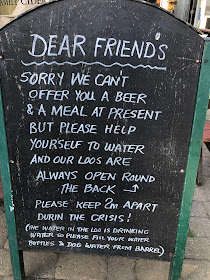 FAMILY CIDER
DEAR FRIENDS
SORRY WE CAN'T
OFFER YOU A BEER
& A MEAL AT PRESENT
BUT PLEASE HELP
YOURSELF TO WATER
AND OUR LOOS ARE
ALWAYS OPEN ROUND
THE BACK →
PLEASE KEEP 2m APART
DURIN THE CRISIS!
(THE WATER IN THE LOO IS DRINKING
WATER SO PLEASE FILL YOUR WATER
BOTTLES & DOG WATER FROM BARREL)